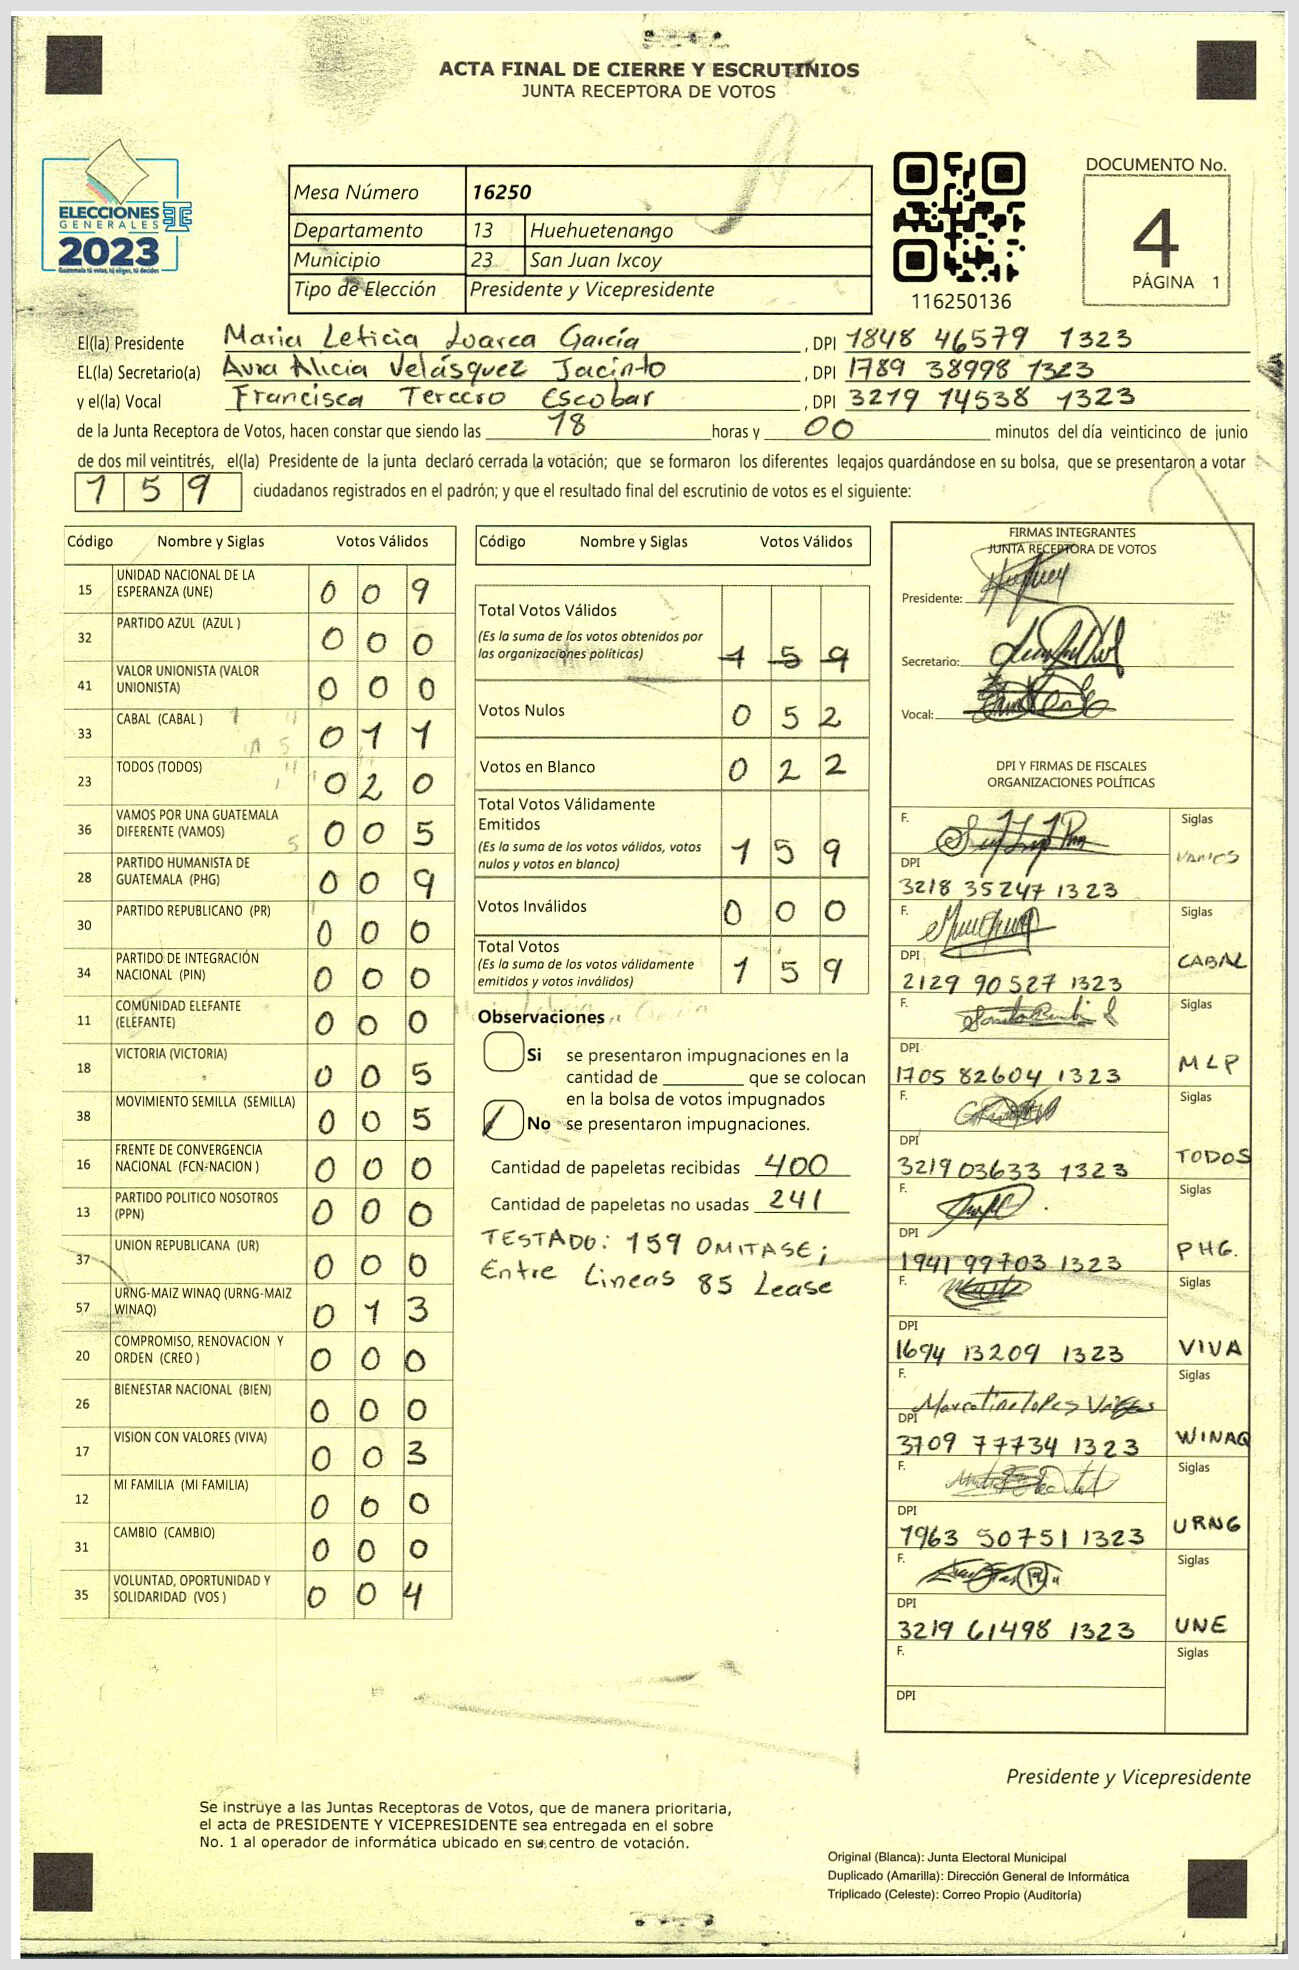 ACTA FINAL DE CIERRE Y ESCRUTINIOS
JUNTA RECEPTORA DE VOTOS
ELECCIONES
GENERALES
2023
Guatemala tú votas, tú eliges, tú decides
Mesa Número 16250
Departamento 13 Huehuetenango
Municipio 23 San Juan Ixcoy
Tipo de Elección Presidente y Vicepresidente
116250136
DOCUMENTO No.
4
PÁGINA 1
El(la) Presidente Maria Leticia Loarca García, DPI 1848 46579 1323
EL(la) Secretario(a) Alicia Velásquez Jacinto, DPI 1789 38998 1323
y el(la) Vocal Francisca Tercero Escobar, DPI 3219 14538 1323
de la Junta Receptora de Votos, hacen constar que siendo las 18 horas y 00 minutos del día veinticinco de junio
de dos mil veintitrés, el(la) Presidente de la junta declaró cerrada la votación; que se formaron los diferentes legajos quardándose en su bolsa, que se presentaron a votar
159 ciudadanos registrados en el padrón; y que el resultado final del escrutinio de votos es el siguiente:
Código Nombre y Siglas Votos Válidos
15 UNIDAD NACIONAL DE LA ESPERANZA (UNE) 0 0 9
32 PARTIDO AZUL (AZUL ) 0 0 0
41 VALOR UNIONISTA (VALOR UNIONISTA) 0 0 0
33 CABAL (CABAL ) 0 1 1
23 TODOS (TODOS) 0 2 0
36 VAMOS POR UNA GUATEMALA DIFERENTE (VAMOS) 0 0 5
28 PARTIDO HUMANISTA DE GUATEMALA (PHG) 0 0 9
30 PARTIDO REPUBLICANO (PR) 0 0 0
34 PARTIDO DE INTEGRACIÓN NACIONAL (PIN) 0 0 0
11 COMUNIDAD ELEFANTE (ELEFANTE) 0 0 0
18 VICTORIA (VICTORIA) 0 0 5
38 MOVIMIENTO SEMILLA (SEMILLA) 0 0 5
16 FRENTE DE CONVERGENCIA NACIONAL (FCN-NACION ) 0 0 0
13 PARTIDO POLITICO NOSOTROS (PPN) 0 0 0
37 UNION REPUBLICANA (UR) 0 0 0
57 URNG-MAIZ WINAQ (URNG-MAIZ WINAQ) 0 1 3
20 COMPROMISO, RENOVACION Y ORDEN (CREO ) 0 0 0
26 BIENESTAR NACIONAL (BIEN) 0 0 0
17 VISION CON VALORES (VIVA) 0 0 3
12 MI FAMILIA (MI FAMILIA) 0 0 0
31 CAMBIO (CAMBIO) 0 0 0
35 VOLUNTAD, OPORTUNIDAD Y SOLIDARIDAD (VOS ) 0 0 4
Código Nombre y Siglas Votos Válidos
Total Votos Válidos
(Es la suma de los votos obtenidos por las organizaciones políticas) 1 5 9
Votos Nulos 0 5 2
Votos en Blanco 0 2 2
Total Votos Válidamente Emitidos
(Es la suma de los votos válidos, votos nulos y votos en blanco) 1 5 9
Votos Inválidos 0 0 0
Total Votos
(Es la suma de los votos válidamente emitidos y votos inválidos) 1 5 9
Observaciones
Si se presentaron impugnaciones en la
cantidad de ________ que se colocan
en la bolsa de votos impugnados
No se presentaron impugnaciones.
Cantidad de papeletas recibidas 400
Cantidad de papeletas no usadas 241
TESTADO: 159 OMITASE;
Entre Lineas 85 Lease
FIRMAS INTEGRANTES
JUNTA RECEPTORA DE VOTOS
Presidente:
Secretario:
Vocal:
DPI Y FIRMAS DE FISCALES
ORGANIZACIONES POLÍTICAS
F. Siglas
DPI 3218 35247 1323
F. Siglas
DPI 2129 90527 1323 CABAL
F. Siglas
DPI 1705 82604 1323 MLP
F. Siglas
DPI 3219 03633 1323 TODOS
F. Siglas
DPI 1941 99703 1323 PHG.
F. Siglas
DPI 1694 13209 1323 VIVA
F. Siglas
DPI 3709 77734 1323 WINAQ
F. Siglas
DPI 7963 50751 1323 URNG
F. Siglas
DPI 3219 61498 1323 UNE
F. Siglas
DPI
Presidente y Vicepresidente
Se instruye a las Juntas Receptoras de Votos, que de manera prioritaria,
el acta de PRESIDENTE Y VICEPRESIDENTE sea entregada en el sobre
No. 1 al operador de informática ubicado en su centro de votación.
Original (Blanca): Junta Electoral Municipal
Duplicado (Amarilla): Dirección General de Informática
Triplicado (Celeste): Correo Propio (Auditoría)